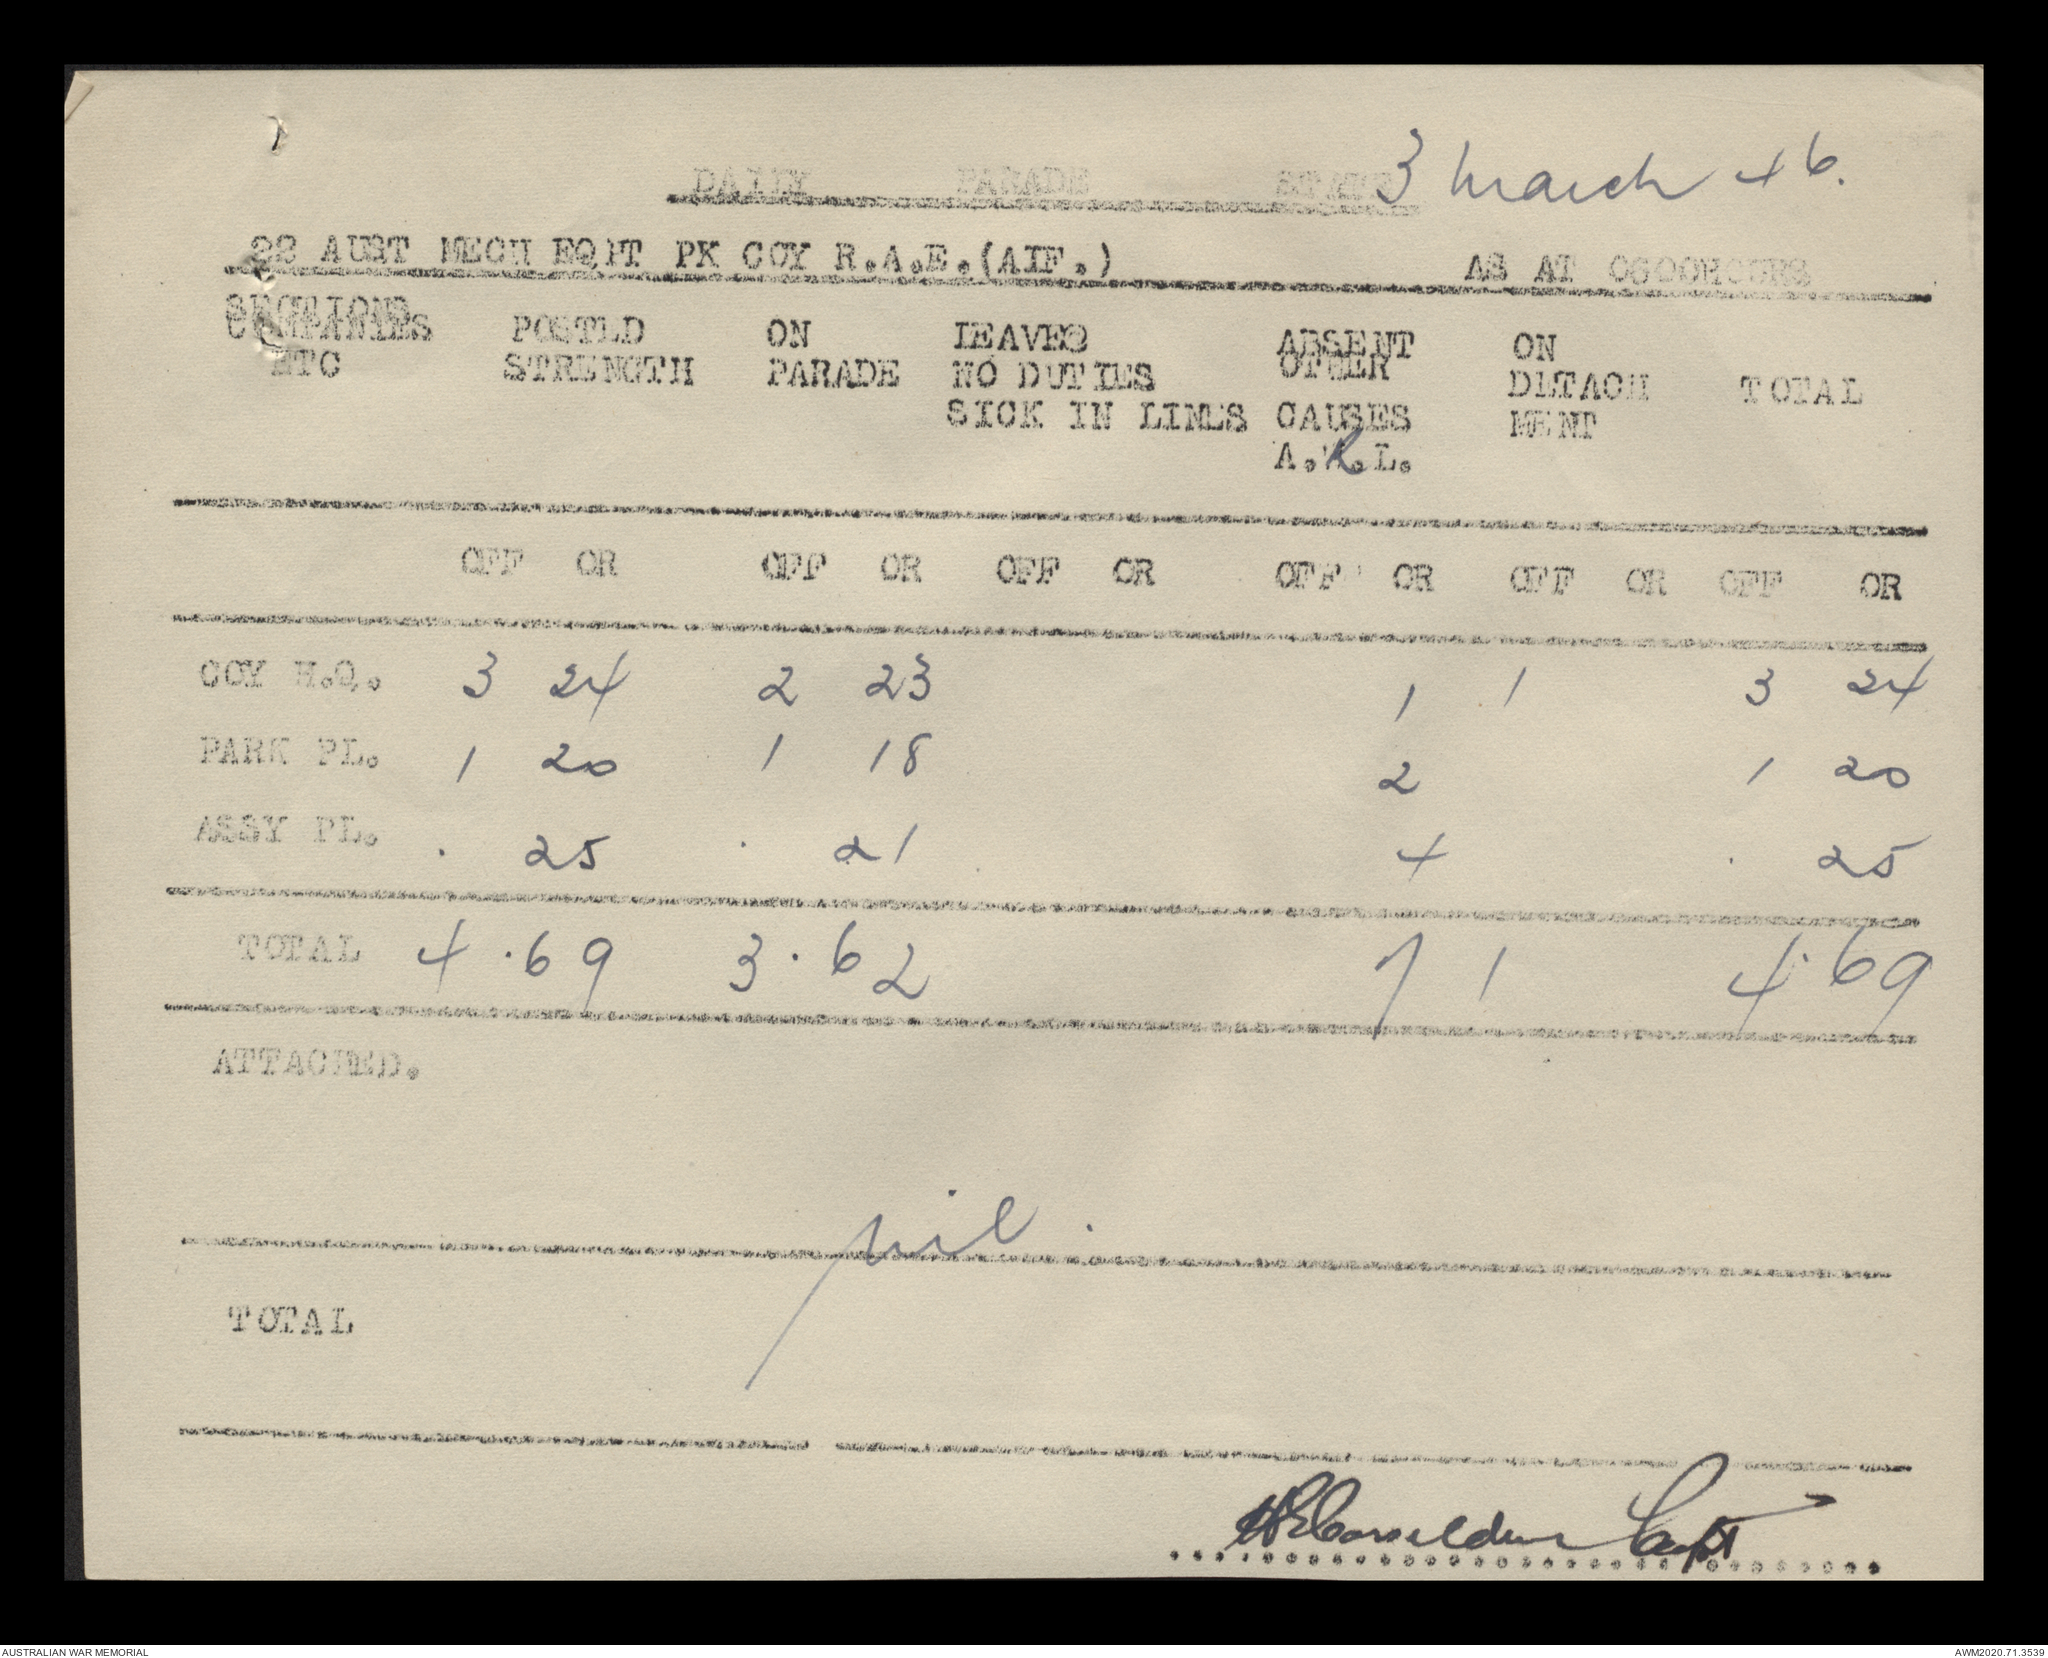 DAILY PARADE STATE 3 March 46.
22 AUST MECH EQPT PK COY R.A.E.(AIF.) AS AT 0600HOURS
SECTIONS
COMPANIES POSTED ON LEAVES ABSENT ON
ETC STRENGTH PARADE NO DUTIES OTHER DETACH TOTAL
SICK IN LINES CAUSES MENT
A.R.L.
OFF OR OFF OR OFF OR OFF OR OFF OR OFF OR
COY H.Q. 3 24 2 23 1 1 3 24
PARK PL. 1 20 1 18 2 1 20
ASSY PL. . 25 . 21 4 . 25
TOTAL 4 . 69 3 . 62 7 1 4 . 69
ATTACHED.
nil.
TOTAL
Capt
AUSTRALIAN WAR MEMORIAL AWM2020.71.3539